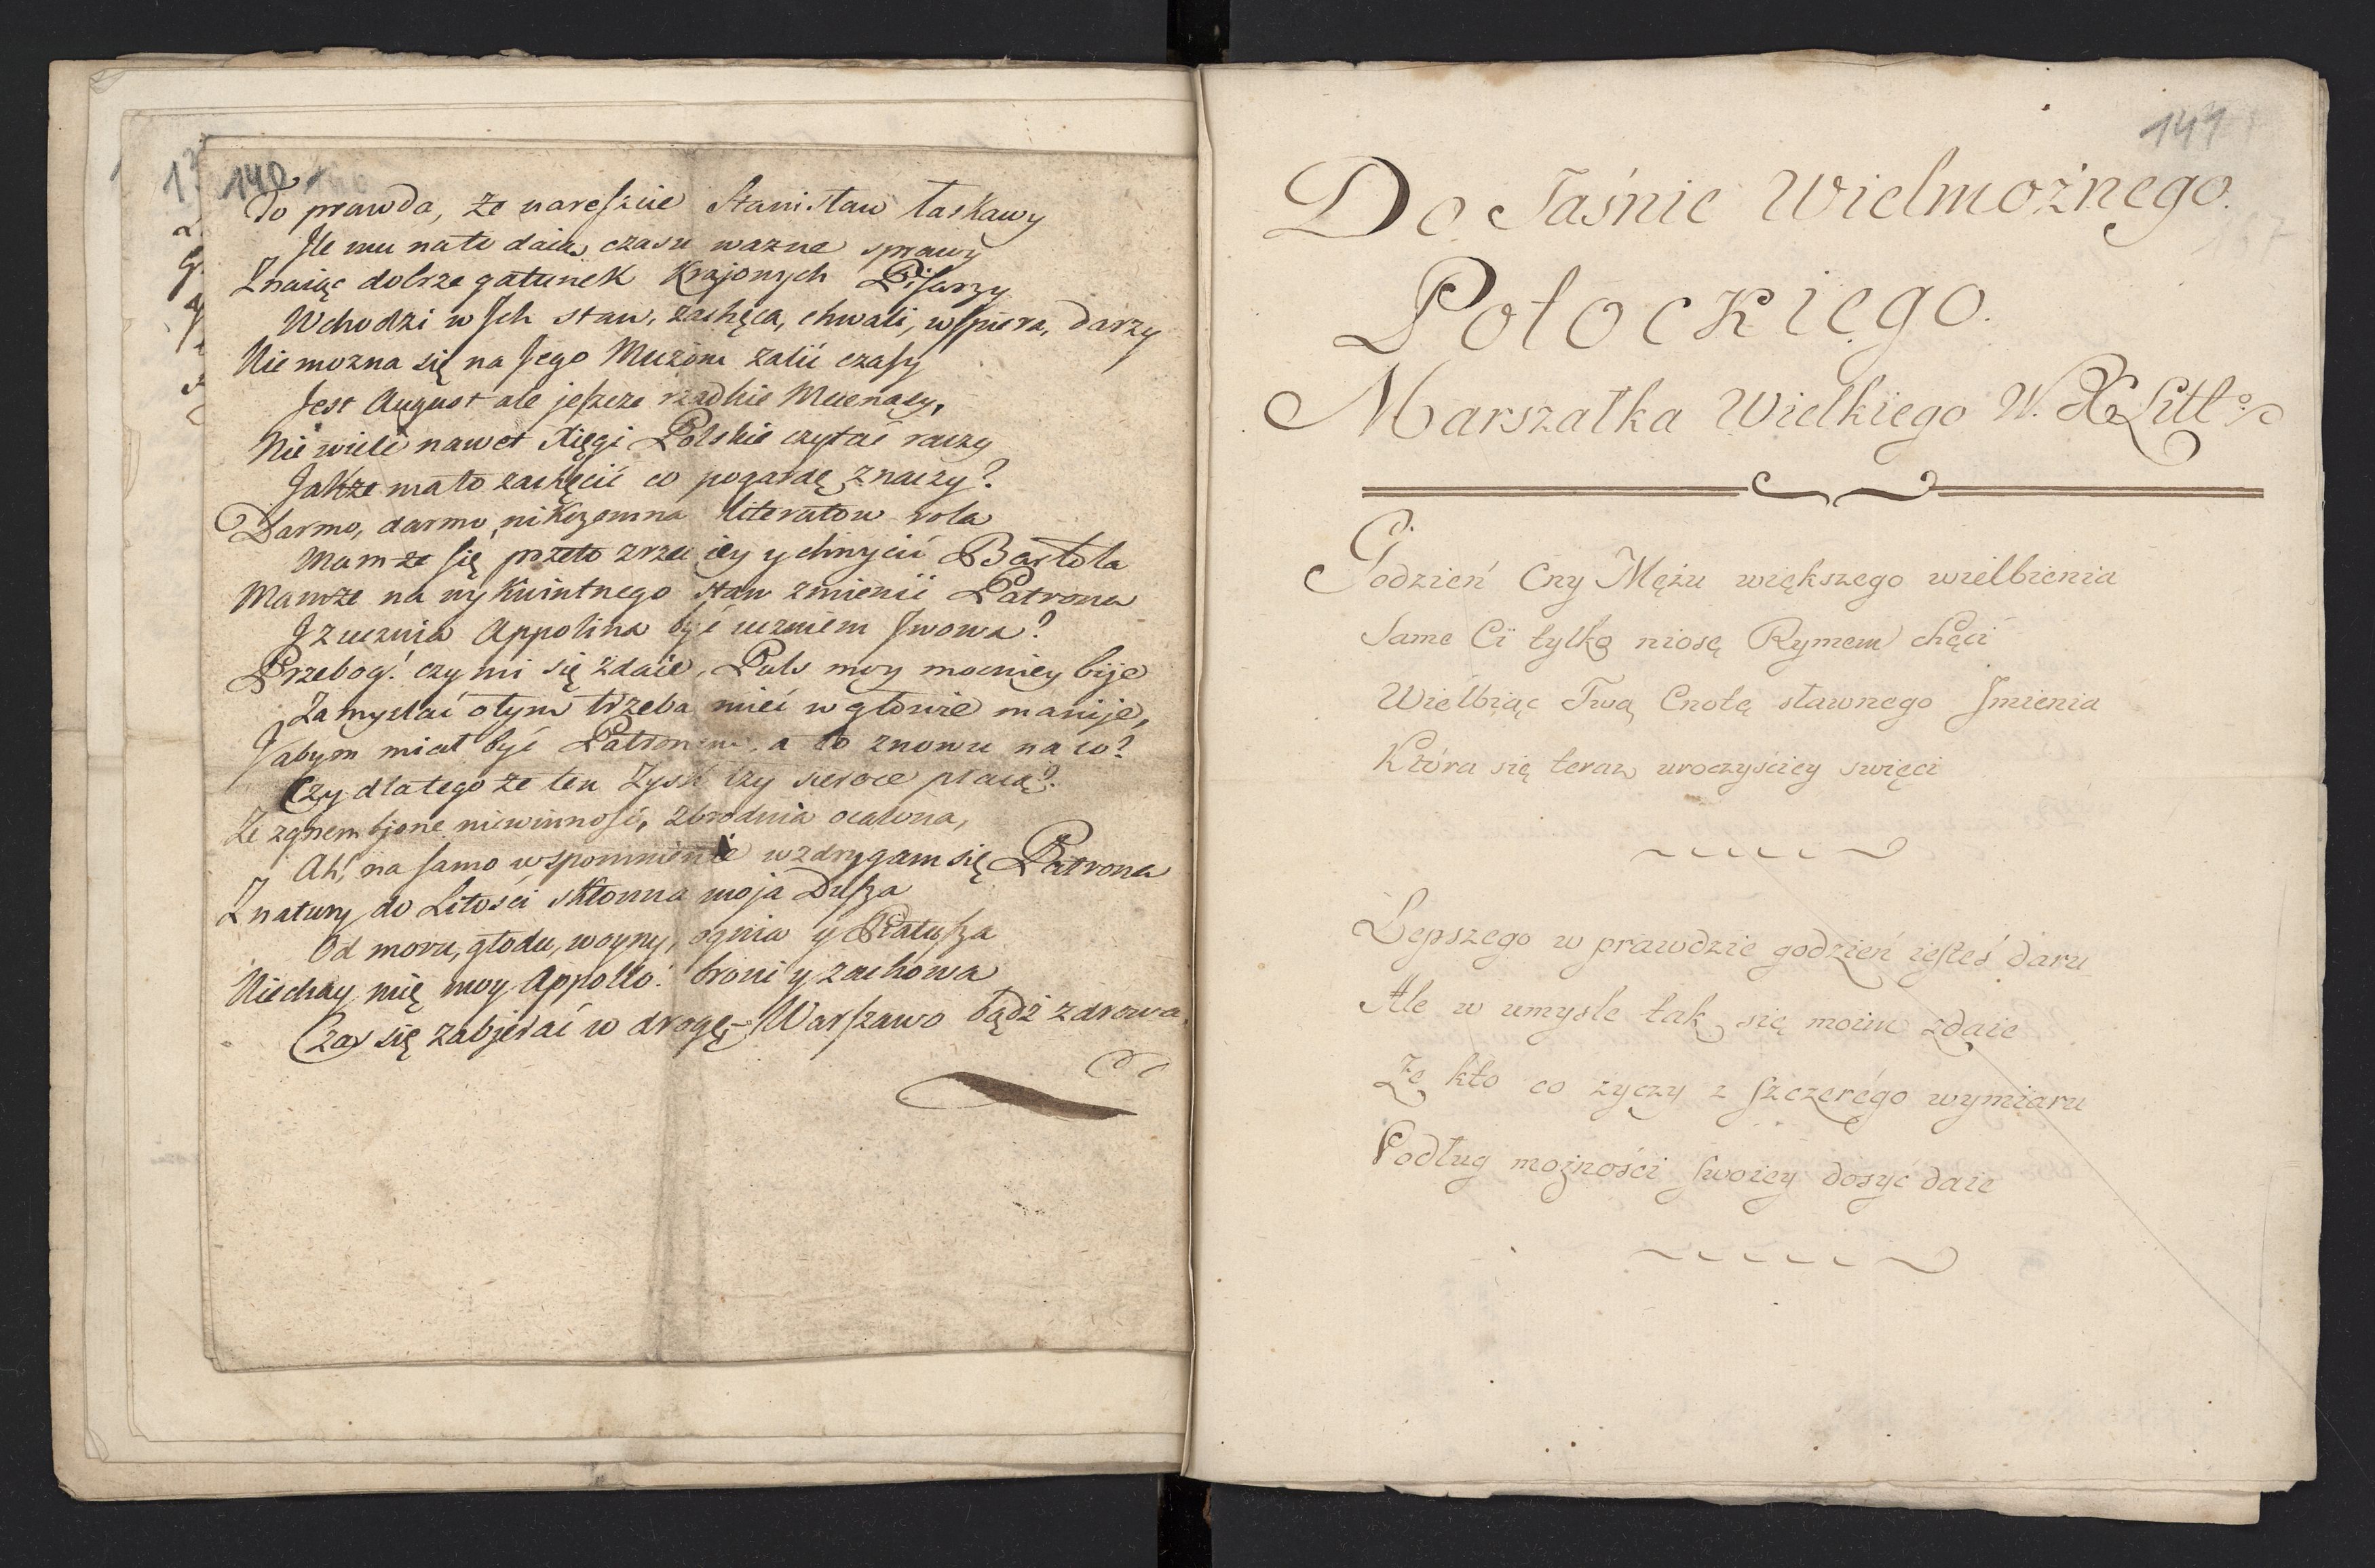 140
To prawda, że nareszcie Stanisław łaskawy
Jle mu na to daią czasu wazne sprawy
Znaiąc dobrze gatunek Krajonych Pisarzy
Wchodzi w Jch stan, zachęca, chwali, wspiera, darzy
Nie mozna się na Jego Muzom zalić czasy
Jest August ale jeszcze rzadkie Mecenasy,
Nie wiele nawet Xięgi Polskie czytać raczy
Jakże mało zachęcić co pogardę znaczy?
Darmo, darmo, nikczemna literatow rola
Mamże się przeto zrzec iey y chwycić Bartola
Mamże na wykwintnego stan zmienić Patrona
J z ucznia Appolina być uczniem Jwona?
Przebog! czy mi się zdaie, Puls moy mocniey bije
Zamyslać o tym trzeba mieć w głowie manije,
Jabym miał być Patronem, a to znowu na co?
Czy dlatego że ten Zysk łzy sieroce płacą?
Ze zgnembjone niewinność, zbrodnia ocalona,
Ah! na samo wspomnienie wzdrygam się Patrona
Z natury do Litości skłonna moja Dusza
Od moru, głodu, woyny, ognia y Ratusza
Niechay mię moy Appollo! broni y zachowa
Czas się zabjerać w drogę, Warszawo bądź zdrowa.
141
Do Jaśnie Wielmożnego.
Potockiego.
Marszałka Wielkiego W. X Litt°
Godzień Cny Mężu większego wielbienia
Same Ci tylko niosę Rymem chęci
Wielbiąc Twą Cnotę sławnego Jmienia
Która się teraz uroczyściey swięci
Lepszego w prawdzie godzień iesteś daru
Ale w umysle tak się moim zdaie
Ze kto co zyczy z szczerego wymiaru
Podług możności swoiey dosyc daie